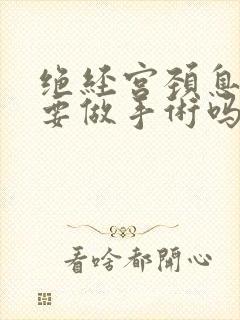 绝经宫颈息
要做手術吗
看啥都開心